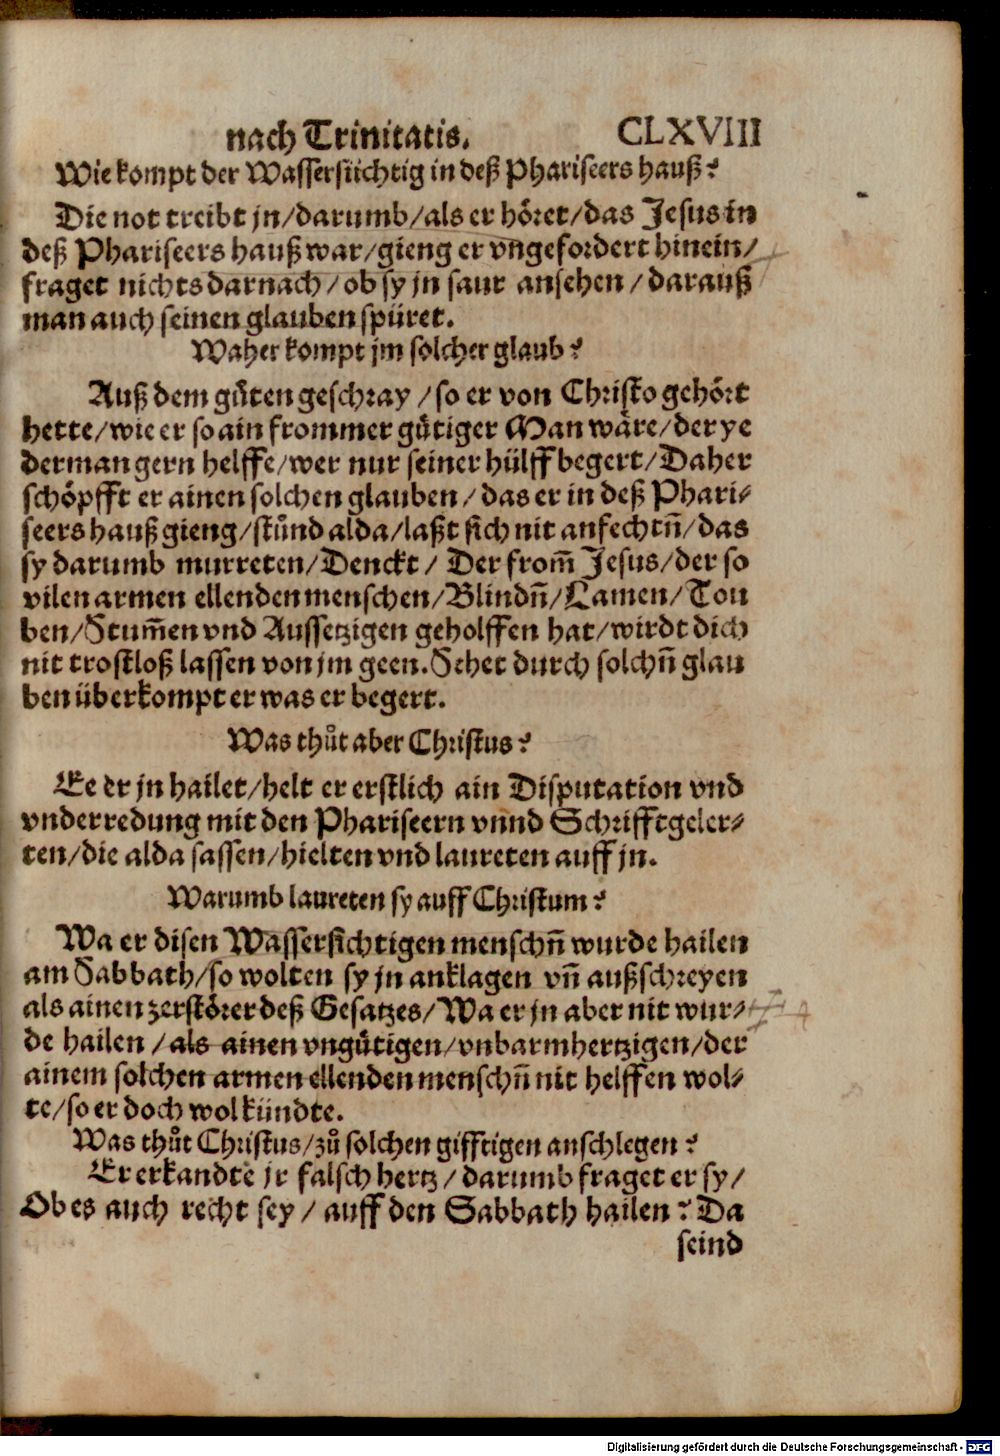 nach Trinitatis. CLXVIII
Wie kompt der Wassersüchtig in deß Phariseers hauß?
Die not treibt jn/darumb/als er höret/das Jesus in
deß Phariseers hauß war/gieng er vngefordert hinein/
fraget nichts darnach/ob sy jn saur ansehen/darauß
man auch seinen glauben spüret.
Waher kompt jm solcher glaub?
Auß dem gůten geschray/so er von Christo gehört
hette/wie er so ain frommer gütiger Man wäre/der ye
derman gern helffe/wer nur seiner hülff begert/Daher
schöpfft er ainen solchen glauben/das er in deß Phari⸗
seers hauß gieng/stůnd alda/laßt sich nit anfechtn̄/das
sy darumb murreten/Denckt/Der from̄ Jesus/der so
vilen armen ellenden menschen/Blindn̄/Lamen/Tou
ben/Stum̄en vnd Aussetzigen geholffen hat/wirdt dich
nit trostloß lassen von jm geen. Sehet durch solchn̄ glau
ben überkompt er was er begert.
Was thůt aber Christus?
Ee er jn hailet/helt er erstlich ain Disputation vnd
vnderredung mit den Phariseern vnnd Schrifftgeler⸗
ten/die alda sassen/hielten vnd laureten auff jn.
Warumb laureten sy auff Christum?
Wa er disen Wassersichtigen menschn̄ wurde hailen
am Sabbath/so wolten sy jn anklagen vn̄ außschreyen
als ainen zerstörer deß Gesatzes/Wa er jn aber nit wur⸗
de hailen/als ainen vngütigen/vnbarmhertzigen/der
ainem solchen armen ellenden menschn̄ nit helffen wol⸗
te/so er doch wol kündte.
Was thůt Christus/zů solchen gifftigen anschlegen?
Er erkandte jr falsch hertz/darumb fraget er sy/
Ob es auch recht sey/auff den Sabbath hailen? Da
seind
Digitalisierung gefördert durch die Deutsche Forschungsgemeinschaft - DFG